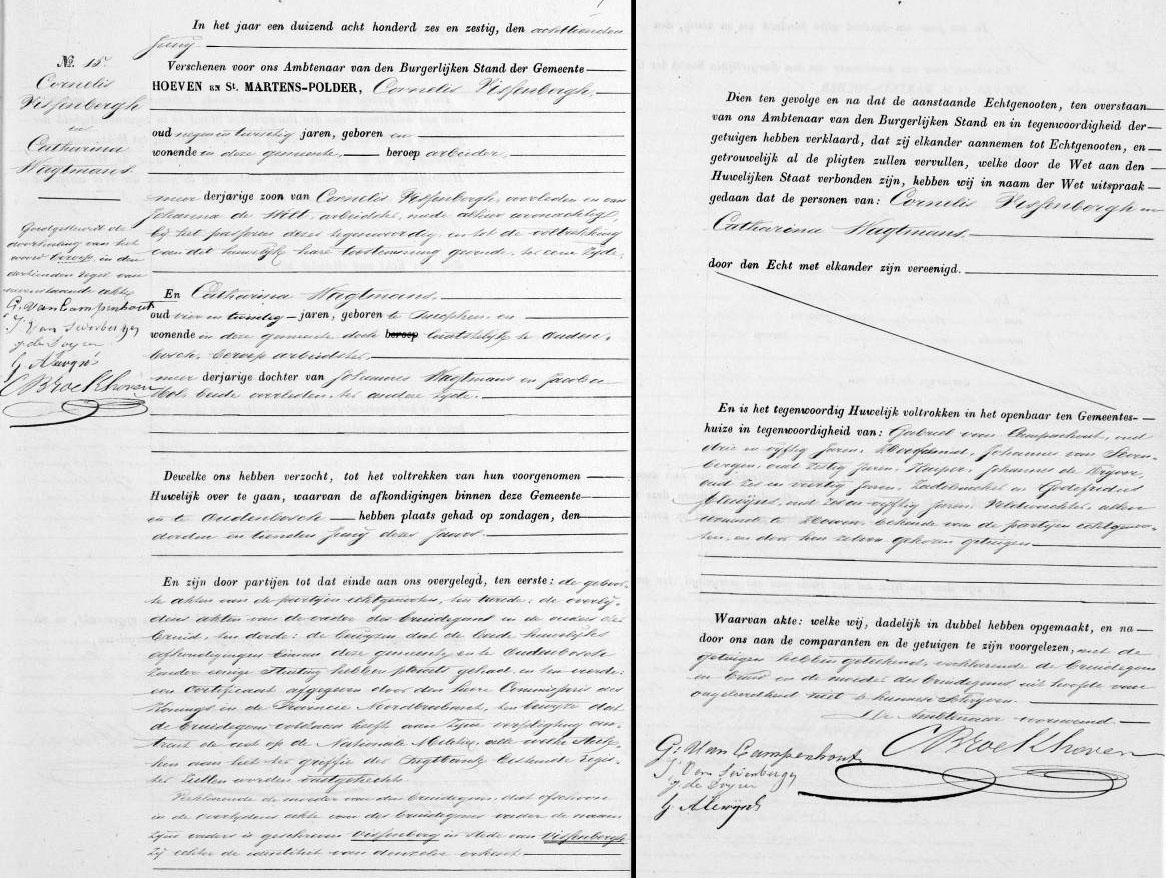 In het jaar een duizend acht honderd zes en zestig, den achttienden
Junij
Verschenen voor ons Ambtenaar van den Burgerlijken Stand der Gemeente
HOEVEN EN St. MARTENS-POLDER, Cornelis Vissenbergh,
oud negen en twintig jaren, geboren en
wonende in deze gemeente, beroep arbeider,
meer derjarige zoon van Cornelis Vissenbergh, overleden en van
Johanna de Witt, arbeidster, mede alhier woonachtig,
bij het passeren dezes tegenwoordig en tot de voltrekking
van dit huwelijk hare toestemming gevende, ter eene zijde,
En Catharina Wagtmans,
oud vier en twintig jaren, geboren te Rucphen en
wonende in deze gemeente doch beroep laatstelijk te Ouden-
bosch, beroep arbeidster,
meer derjarige dochter van Johannes Wagtmans en Jacoba
Mol, beide overleden, ter andere zijde.
Dewelke ons hebben verzocht, tot het voltrekken van hun voorgenomen
Huwelijk over te gaan, waarvan de afkondigingen binnen deze Gemeente
en te Oudenbosch hebben plaats gehad op zondagen, den
derden en tienden Junij dezes jaars.
En zijn door partijen tot dat einde aan ons overgelegd, ten eerste: de geboor-
te akten van de partijen echtgenooten, ten tweede: de overlij-
dens akten van de vader des bruidegoms en de ouders der
bruid, ten derde: de bewijzen dat de beide huwelijks
afkondigingen binnen deze gemeente en te Oudenbosch
zonder eenige stuiting hebben plaats gehad en ten vierde:
een certificaat afgegeven door den heere Commissaris des
Konings in de Provincie Noordbrabant, ten bewijze dat
de bruidegom voldaan heeft aan zijne verpligting om-
trent de dienst op de Nationale Militie, alle welke stuk-
ken aan het ter griffie der Regtbank berustende regis-
ter zullen worden vastgehecht.
Verklarende de moeder van den bruidegom, dat ofschoon
in de overlijdens akte van des bruidegoms vader de naam
zijns vaders is geschreven Vissenberg in stede van Vissenbergh
zij echter de identiteit van denzelve erkent
No. 15.
Cornelis
Vissenbergh
en
Catharina
Wagtmans.
Goedgekeurd de
doorhaling van het
woord beroep, in den
dertienden regel van
nevenstaande akte
G. Van Campenhout
J Van Sevenbergen
G Alewijns
C Broekhoven
Dien ten gevolge en na dat de aanstaande Echtgenooten, ten overstaan
van ons Ambtenaar van den Burgerlijken Stand en in tegenwoordigheid der
getuigen hebben verklaard, dat zij elkander aannemen tot Echtgenooten, en
getrouwelijk al de pligten zullen vervullen, welke door de Wet aan den
Huwelijken Staat verbonden zijn, hebben wij in naam der Wet uitspraak
gedaan dat de personen van: Cornelis Vissenbergh en
Catharina Wagtmans,
door den Echt met elkander zijn vereenigd.
En is het tegenwoordig Huwelijk voltrokken in het openbaar ten Gemeentes-
huize in tegenwoordigheid van: Gabriel van Campenhout, oud
drie en vijftig jaren, Johannes van Seven-
bergen, oud zestig jaren, Johannes de
oud zes en veertig jaren, en Godefridus
Alewijns, oud zes en vijftig jaren, Veldwachter, allen
wonende te Hoeven, bekende van de partijen echtgenoo-
ten, en door hen zelven gekozen getuigen
Waarvan akte: welke wij, dadelijk in dubbel hebben opgemaakt, en na
door ons aan de comparanten en de getuigen te zijn voorgelezen, met de
getuigen hebben geteekend, verklarende de bruidegom
en bruid en de moeder des bruidegoms uit hoofde van
ongeleerdheid niet te kunnen schrijven.
De Ambtenaar voornoemd
G: Van Campenhout C Broekhoven
J Van Sevenbergen
G Alewijns